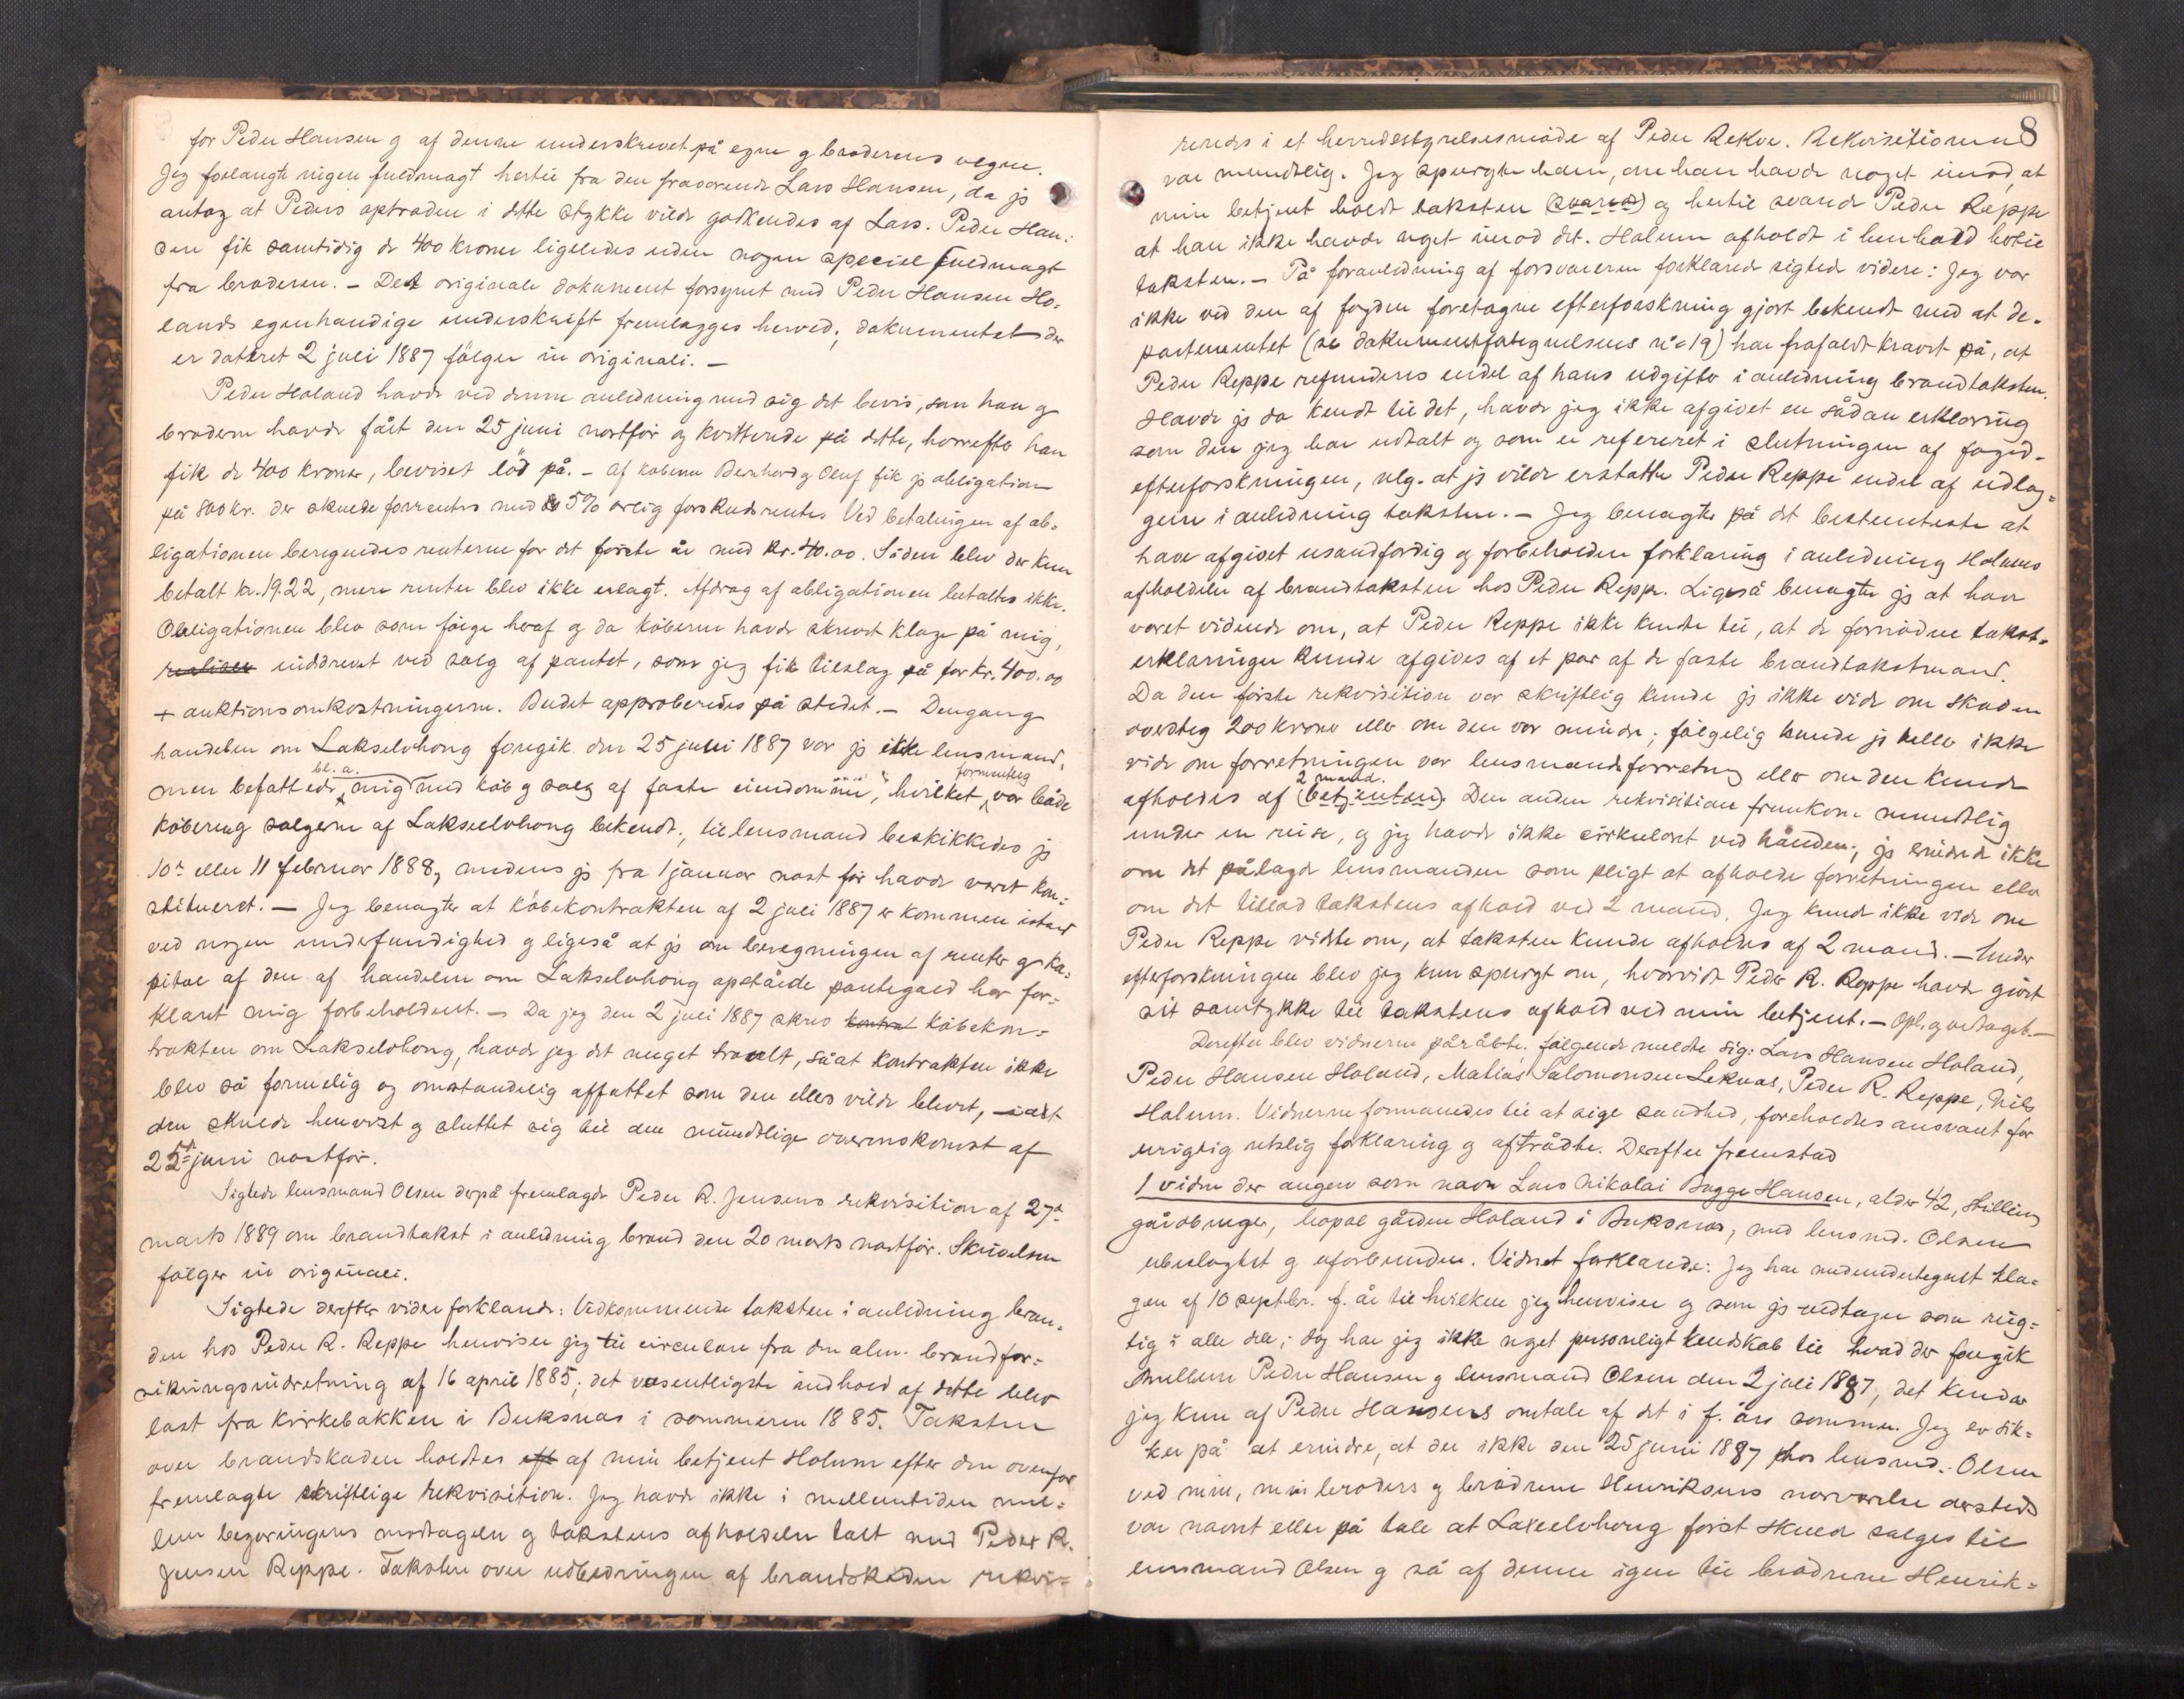 for Peder Hansen g af denne underskrevet på egne g broderens vegne.
Jeg forlangte ingen fuldmagt hertil fra den fraværende Lars Hansen, da jg
antog at Peders optræden i dette stykke vilde godkendes af Lars. Peder Han-
sen fik samtidig de 400 kroner ligeledes uden nogen speciel fuldmagt
fra broderen. – Det originale dokument forsynet med Peder Hansen Ho-
lands egenhændige underskrift fremlægges herved; dokumentet der
er dateret 2 juli 1887 følger in originali. –
Peder Holand havde ved denne anledning med sig det bevis, som han g
broderen havde fåt den 25 juni næstfør og kvitterede på dette, hvorefter han
fik de 400 kroner, beviset lød på. – Af køberne Bernhard g Oluf fik jg obligation
på 800 kr. der skulde forrentes med 5% årlig forskudsrente. Ved betalingen af ob-
ligationen beregnedes renterne for det første år med kr. 40.00. Siden blev der kun
betalt kr. 19.22, mere renter blev ikke erlagt. Afdrag af obligationen betaltes ikke.
Obligationen blev som følge heraf og da køberne havde skrevet klage på mig,
realiser inddrevet ved salg af pantet, som jeg fik tilslag på for kr. 400.00
+ auktionsomkostningerne. Budet approberedes på stedet. – Dengang
handelen om Lakselvhong foregik den 25 juni 1887 var jg ikke lensmand,
men befattede bl. a. mig med køb g salg af faste eiendomme, hvilket formentlig var både
køberne g sælgerne af Lakselvhong bekendt; til lensmand beskikkedes jg
10de eller 11 februar 1888, medens jg fra 1 januar næst før havde været kon-
stitueret. – Jeg benægter at købekontrakten af 2 juli 1887 er kommen istand
ved nogen underfundighed g ligeså at jg om beregningen af renter g ka-
pital af den af handelen om Lakselvhong opståede pantegæld har for-
klaret mig forbeholdent. – Da jeg den 2 juli 1887 skrev kontrak købekon-
trakten om Lakselvhong, havde jeg det meget travelt, såat kontrakten ikke
blev så formelig og omstændelig affattet som den ellers vilde blevet,
den skulde henvist g sluttet sig til den mundtlige overenskomst af
25de juni næstfør.
Sigtede lensmand Olsen derpå fremlagde Peder R. Jensens rekvisition af 27de
marts 1889 om brandtakst i anledning brand den 20 marts næstfør. Skrivelsen
følger in originali.
Sigtede derefter videre forklarede: Vedkommende taksten i anledning bran-
den hos Peder R. Reppe henviser jeg til circulære fra den alm. brandfor-
sikringsindretning af 16 april 1885; det væsentligste indhold af dette blev
læst fra kirkebakken i Buksnæs i sommeren 1885. Taksten
over brandskaden holdtes eft af min betjent Holum efter den ovenfor
fremlagte skriftlige rekvisition. Jeg havde ikke i mellemtiden mel-
lem begæringens modtagelse g takstens afholdelse talt med Peder R.
Jensen Reppe. Taksten over udbedringen af brandskaden rekvi-
8
reredes i et herredsstyrelsesmøde af Peder Rekve. Rekvisitionen
var mundtlig. Jeg spurgte ham, om han havde noget imod, at
min betjent holdt taksten (svared) og hertil svarede Peder Reppe
at han ikke havde noget imod det. Holum afholdt i henhold hertil
taksten. – På foranledning af forsvareren forklarede sigtede videre: Jeg var
ikke ved den af fogden foretagne efterforskning gjort bekendt med at de-
partementet (se dokumentfortegnelsens no 19) har frafaldt kravet på, at
Peder Reppe refunderes endel af hans udgifter i anledning brandtaksten.
Havde jg da kendt til det, havde jeg ikke afgivet en sådan erklæring
som den jeg har udtalt og som er refereret i slutningen af fogd-
efterforskningen, nlg. at jg vilde erstatte Peder Reppe endel af udlæg-
gene i anledning taksten. – Jeg benægter på det bestemteste at
have afgivet usandfærdig og forbeholden forklaring i anledning Holums
afholdelse af brandtaksten hos Peder Reppe. Ligeså benægter jg at have
været vidende om, at Peder Reppe ikke kendte til, at de fornødne takst-
erklæringer kunde afgives af et par af de faste brandtakstmænd.
Da den første rekvisition var skriftlig kunde jg ikke vide om skaden
oversteg 200 kroner eller om den var mindre; følgelig kunde jg heller ikke
vide om forretningen var lensmandsforretning eller om den kunde
afholdes af (betjenten) 2 mænd. Den anden rekvisition fremkom mundtlig
under en reise, og jeg havde ikke cirkulæret ved hånden; jg erindrede ikke
om det pålagde lensmanden som pligt at afholde forretningen eller
om det tillod takstens afhold ved 2 mænd. Jeg kunde ikke vide om
Peder Reppe vidste om, at taksten kunde afholdes af 2 mænd. – Under
efterforskningen blev jeg kun spurgt om, hvorvidt Peder R. Reppe havde givet
sit samtykke til takstens afhold ved min betjent. – Opl. g vedtaget. –
Derefter blev vidnerne påråbte: følgende meldte sig: Lars Hansen Holand,
Peder Hansen Holand, Matias Salomonsen Leknæs, Peder R. Reppe, Nils
Holum. Vidnerne formanedes til at sige sandhed, foreholdtes ansvaret for
urigtig retslig forklaring og aftrådte. Derefter fremstod
1 vidne der angav som navn Lars Nikolai Bugge Hansen, alder 42, stilling
gårdbruger, bopæl gården Holand i Buksnæs, med lensmd. Olsen
ubeslægtet g uforbunden. Vidnet forklarede: Jeg har medundertegnet kla-
gen af 10 septbr. f. år til hvilken jeg henviser og som jg vedtager som rig-
tig i alle dele; dog har jeg ikke noget personligt kendskab til hvad der foregik
mellem Peder Hansen g lensmand Olsen den 2 juli 1887, det kender
jeg kun af Peder Hansens omtale af det i f. års sommer. Jeg er sik-
ker på at erindre, at der ikke den 25 juni 1887 hos lensmd. Olsen
ved min, min broders g brødrene Henriksens nærværelse dersteds
var nævnt eller på tale at Lakselvhong først skulde sælges til
lensmand Olsen g så af denne igen til brødrene Henrik-